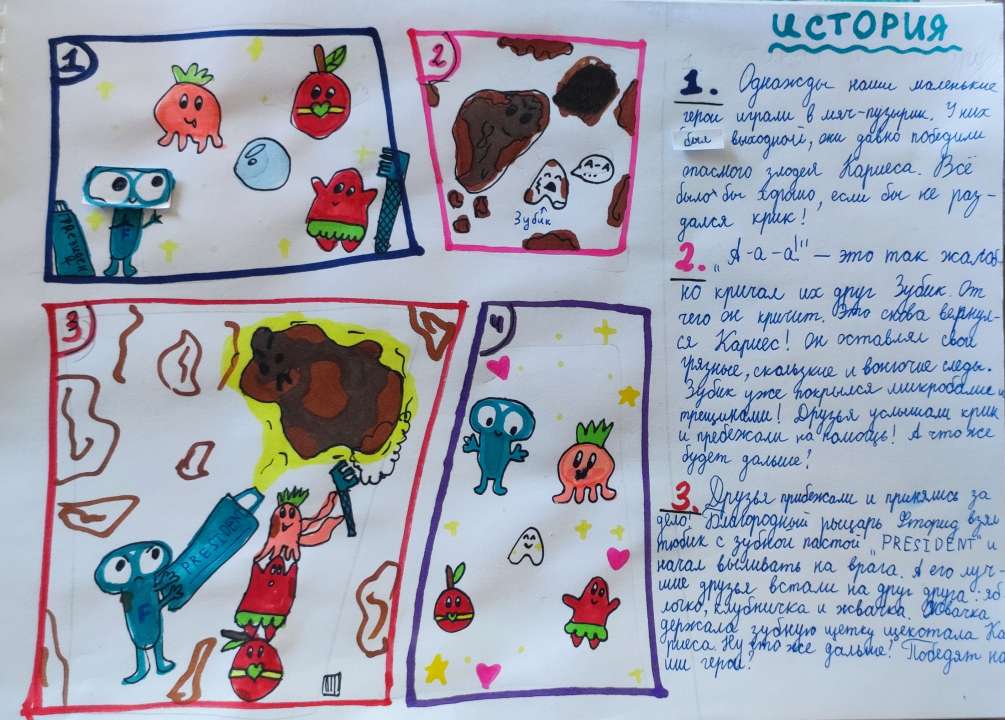 ИСТОРИЯ
1
PRESIDENT
2
А-А
Зубик
3
PRESIDENT
F
4
1. Однажды наши маленькие
герои играли в мяч-пузырик. У них
был выходной, они давно победили
опасного злодея Кариеса. Всё
было бы хорошо, если бы не раз-
дался крик!
2. „А-а-а!" – это так жалоб-
но кричал их друг Зубик. От
чего он кричит. Это снова вернул-
ся Кариес! Он оставлял свои
грязные, скользкие и вонючие следы.
Зубик уже покрылся микробами и
трещинами! Друзья услышали крик
и пребежали на помощь! А что же
будет дальше?
3. Друзья прибежали и принялись за
дело! Благородный рыцарь Фторид взял
тюбик с зубной пастой „PRESIDENT" и
начал выливать на врага. А его луч-
шие друзья встали на друг друга: яб
лочко, клубничка и жвачка. Жвачка
держала зубную щетку щекотала Ка
риеса. Ну что же дальше? Победят на
ши герои?